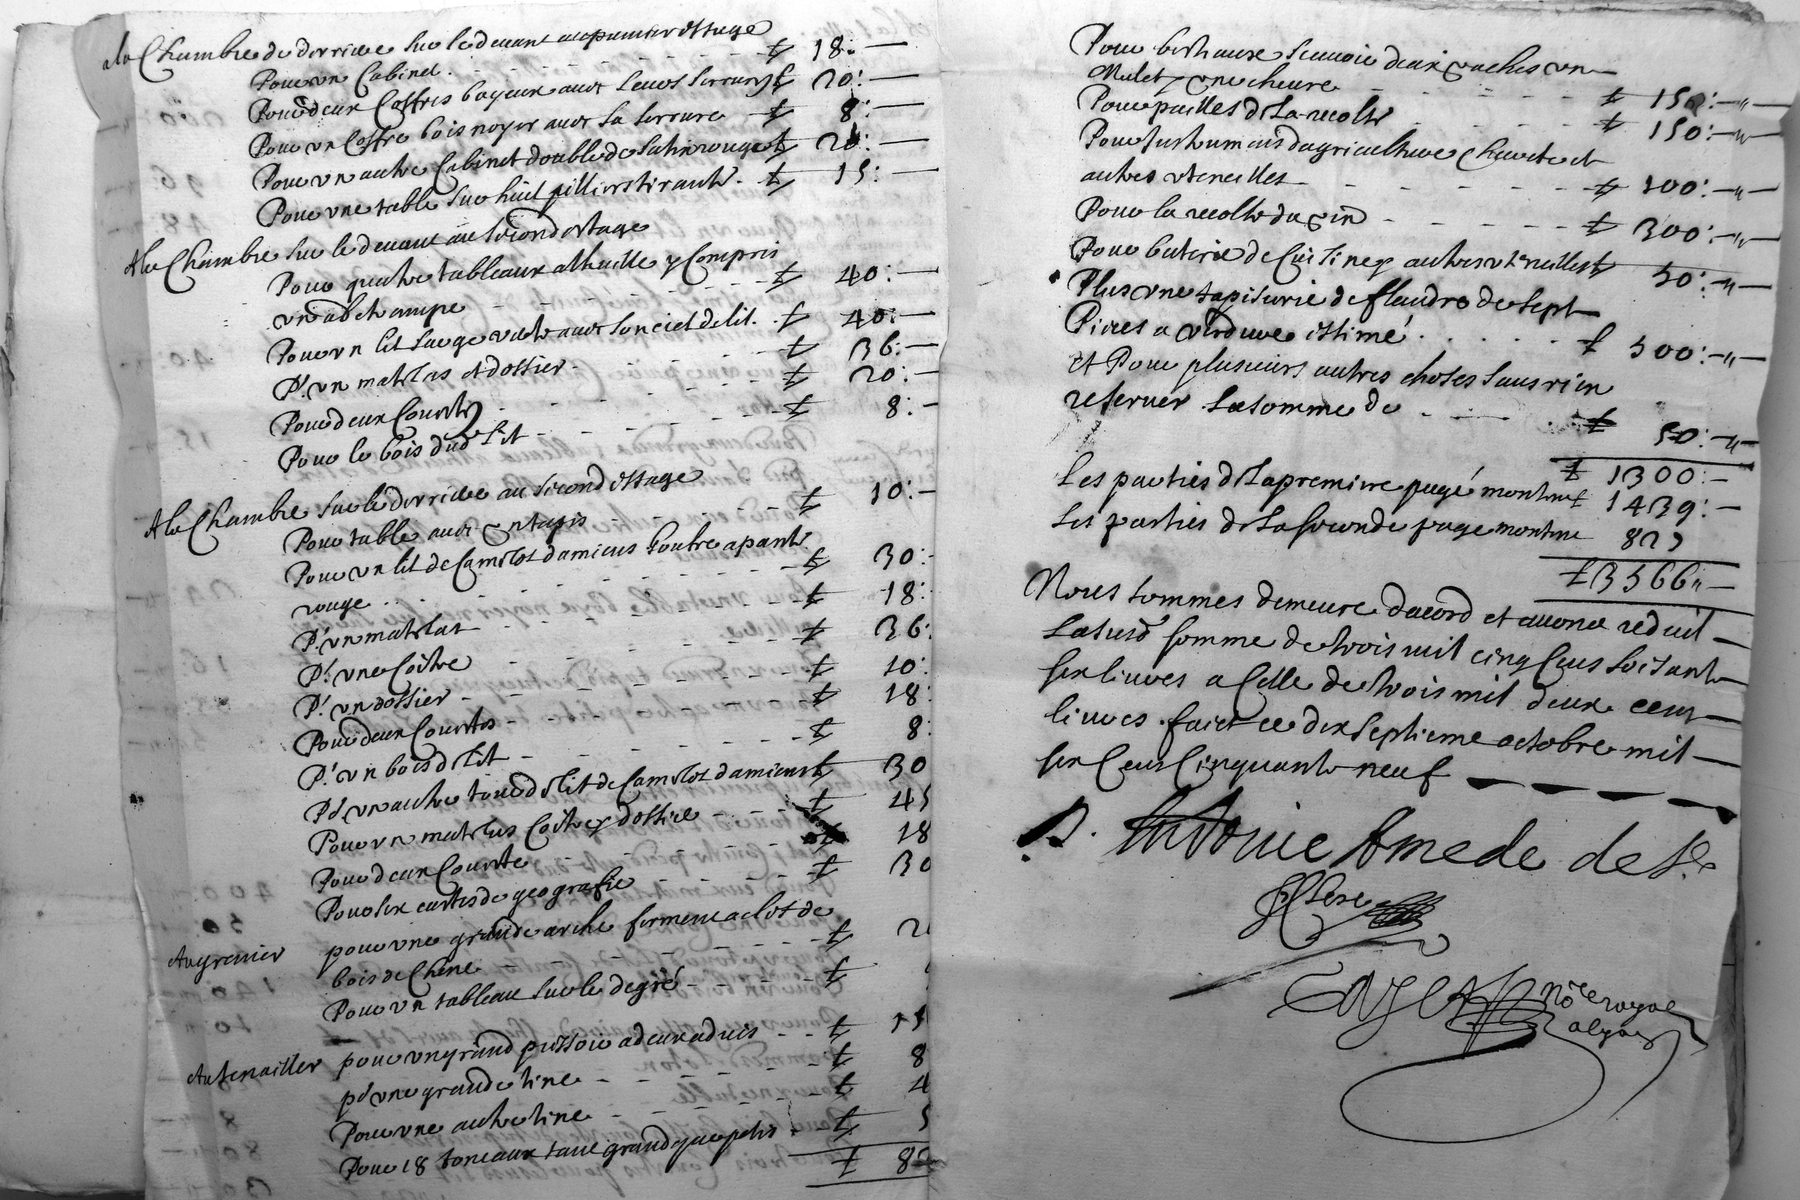 a la Chambre de derriere sur le devant au premier estage
Pour un Cabinet . . . ₶ 18: —
Pour deux Coffres bayeux avec leurs serrures ₶ 20: —
Pour un Coffre bois noyer avec sa serrure ₶ 8: —
Pour un autre Cabinet double de satin rouge ₶ 20: —
Pour une table sur huit pilliers tirante . ₶ 15: —
A la Chambre sur le devant au second estage
Pour quatre tableaux a l'huille y Compris
un a detrampe ₶ 40: —
Pour un lit sarge verte avec son ciel de lit . ₶ 40: —
Pr. un matelas et dossier ₶ 36: —
Pour deux Couvertes ₶ 20: —
Pour le bois dud. lit ₶ 8: —
A la Chambre sur le derriere au second estage
Pour table avec un tapis ₶ 10: —
Pour un lit de Camelot damiens
rouge . . . ₶ 30:
Pr. un matelas ₶ 18:
Pr. une Coitre ₶ 36:
Pr. un dossier ₶ 10:
Pour deux Couvertes ₶ 18:
Pr. un bois de lit ₶ 8:
Pr. un autre tour de lit de Camelot damiens ₶ 30
Pour un matelas Coitre y dossier ₶ 45
Pour deux Couverte ₶ 18
Pour six cartes de geografie ₶ 30
Au grenier pour une grande arche fermeure a clef de
bois de Chene ₶ 2
Pour un tableau sur le degré ₶
Au tenailler pour un grand pressoir a deux a vis ₶ 15
pr. une grande tine ₶ 8
Pour une autre tine ₶ 4
Pour 18 toneaux tant grand que petis ₶ 5
₶ 82
Pour bestiaux scavoir deux vaches un
Mulet y une cheure ₶ 150: —
Pour pailles de la recolte ₶ 150: —
Pour instrumens dagriculture charete et
autres uteneilles ₶ 100: —
Pour la recolte du vin ₶ 300: —
Pour baterie de Cuisine y autres uteneilles ₶ 50: —
Plus une tapisserie de flandre de sept
Pieces a verdure estimé . . . ₶ 500: —
et Pour plusieurs autres choses sans rien
reserver La somme de ₶ 50: —
₶ 1300: —
Les parties de la premiere page montent ₶ 1439: —
Les parties de la seconde page montent 827
₶ 3566 " —
Nous sommes demeure dacord et avons reduit
la susd. somme de trois mil cinq Cens soisante
six liures a Celle de trois mil deux cens
liures. faict ce dix septieme octobre mil
six Cens Cinquante neuf
Antoine Amede de
nore royal